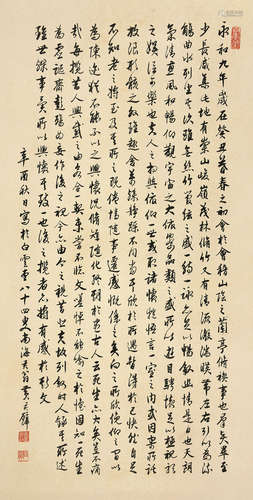 永和九年歲在癸丑暮春之初會於會稽山陰之蘭亭脩禊事也群賢畢至
少長咸集此地有崇山峻嶺茂林脩竹又有清流激湍映帶左右引以為流
觴曲水列坐其次雖無絲竹管弦之盛一觴一詠亦足以暢敘幽情是日也天朗
氣清惠風和暢仰觀宇宙之大俯察品類之盛所以遊目騁懷足以極視聽
之娛信可樂也夫人之相與俯仰一世或取諸懷抱悟言一室之內或因寄所託
放浪形骸之外雖趣舍萬殊靜躁不同當其欣於所遇暫得於己快然自足
不知老之將至及其所之既倦情隨事遷感慨係之矣向之所欣俛仰之間以
為陳迹猶不能不以之興懷況脩短隨化終期於盡古人云死生亦大矣豈不痛
哉每攬昔人興感之由若合一契未嘗不臨文嗟悼不能喻之於懷固知一死生
為虛誕齊彭殤為妄作後之視今亦由今之視昔悲夫故列敘時人錄其所述
雖世殊事異所以興懷其致一也後之攬者亦將有感於斯文
辛酉秋日寫於白雲堂八十四叟南海君翁黃君璧